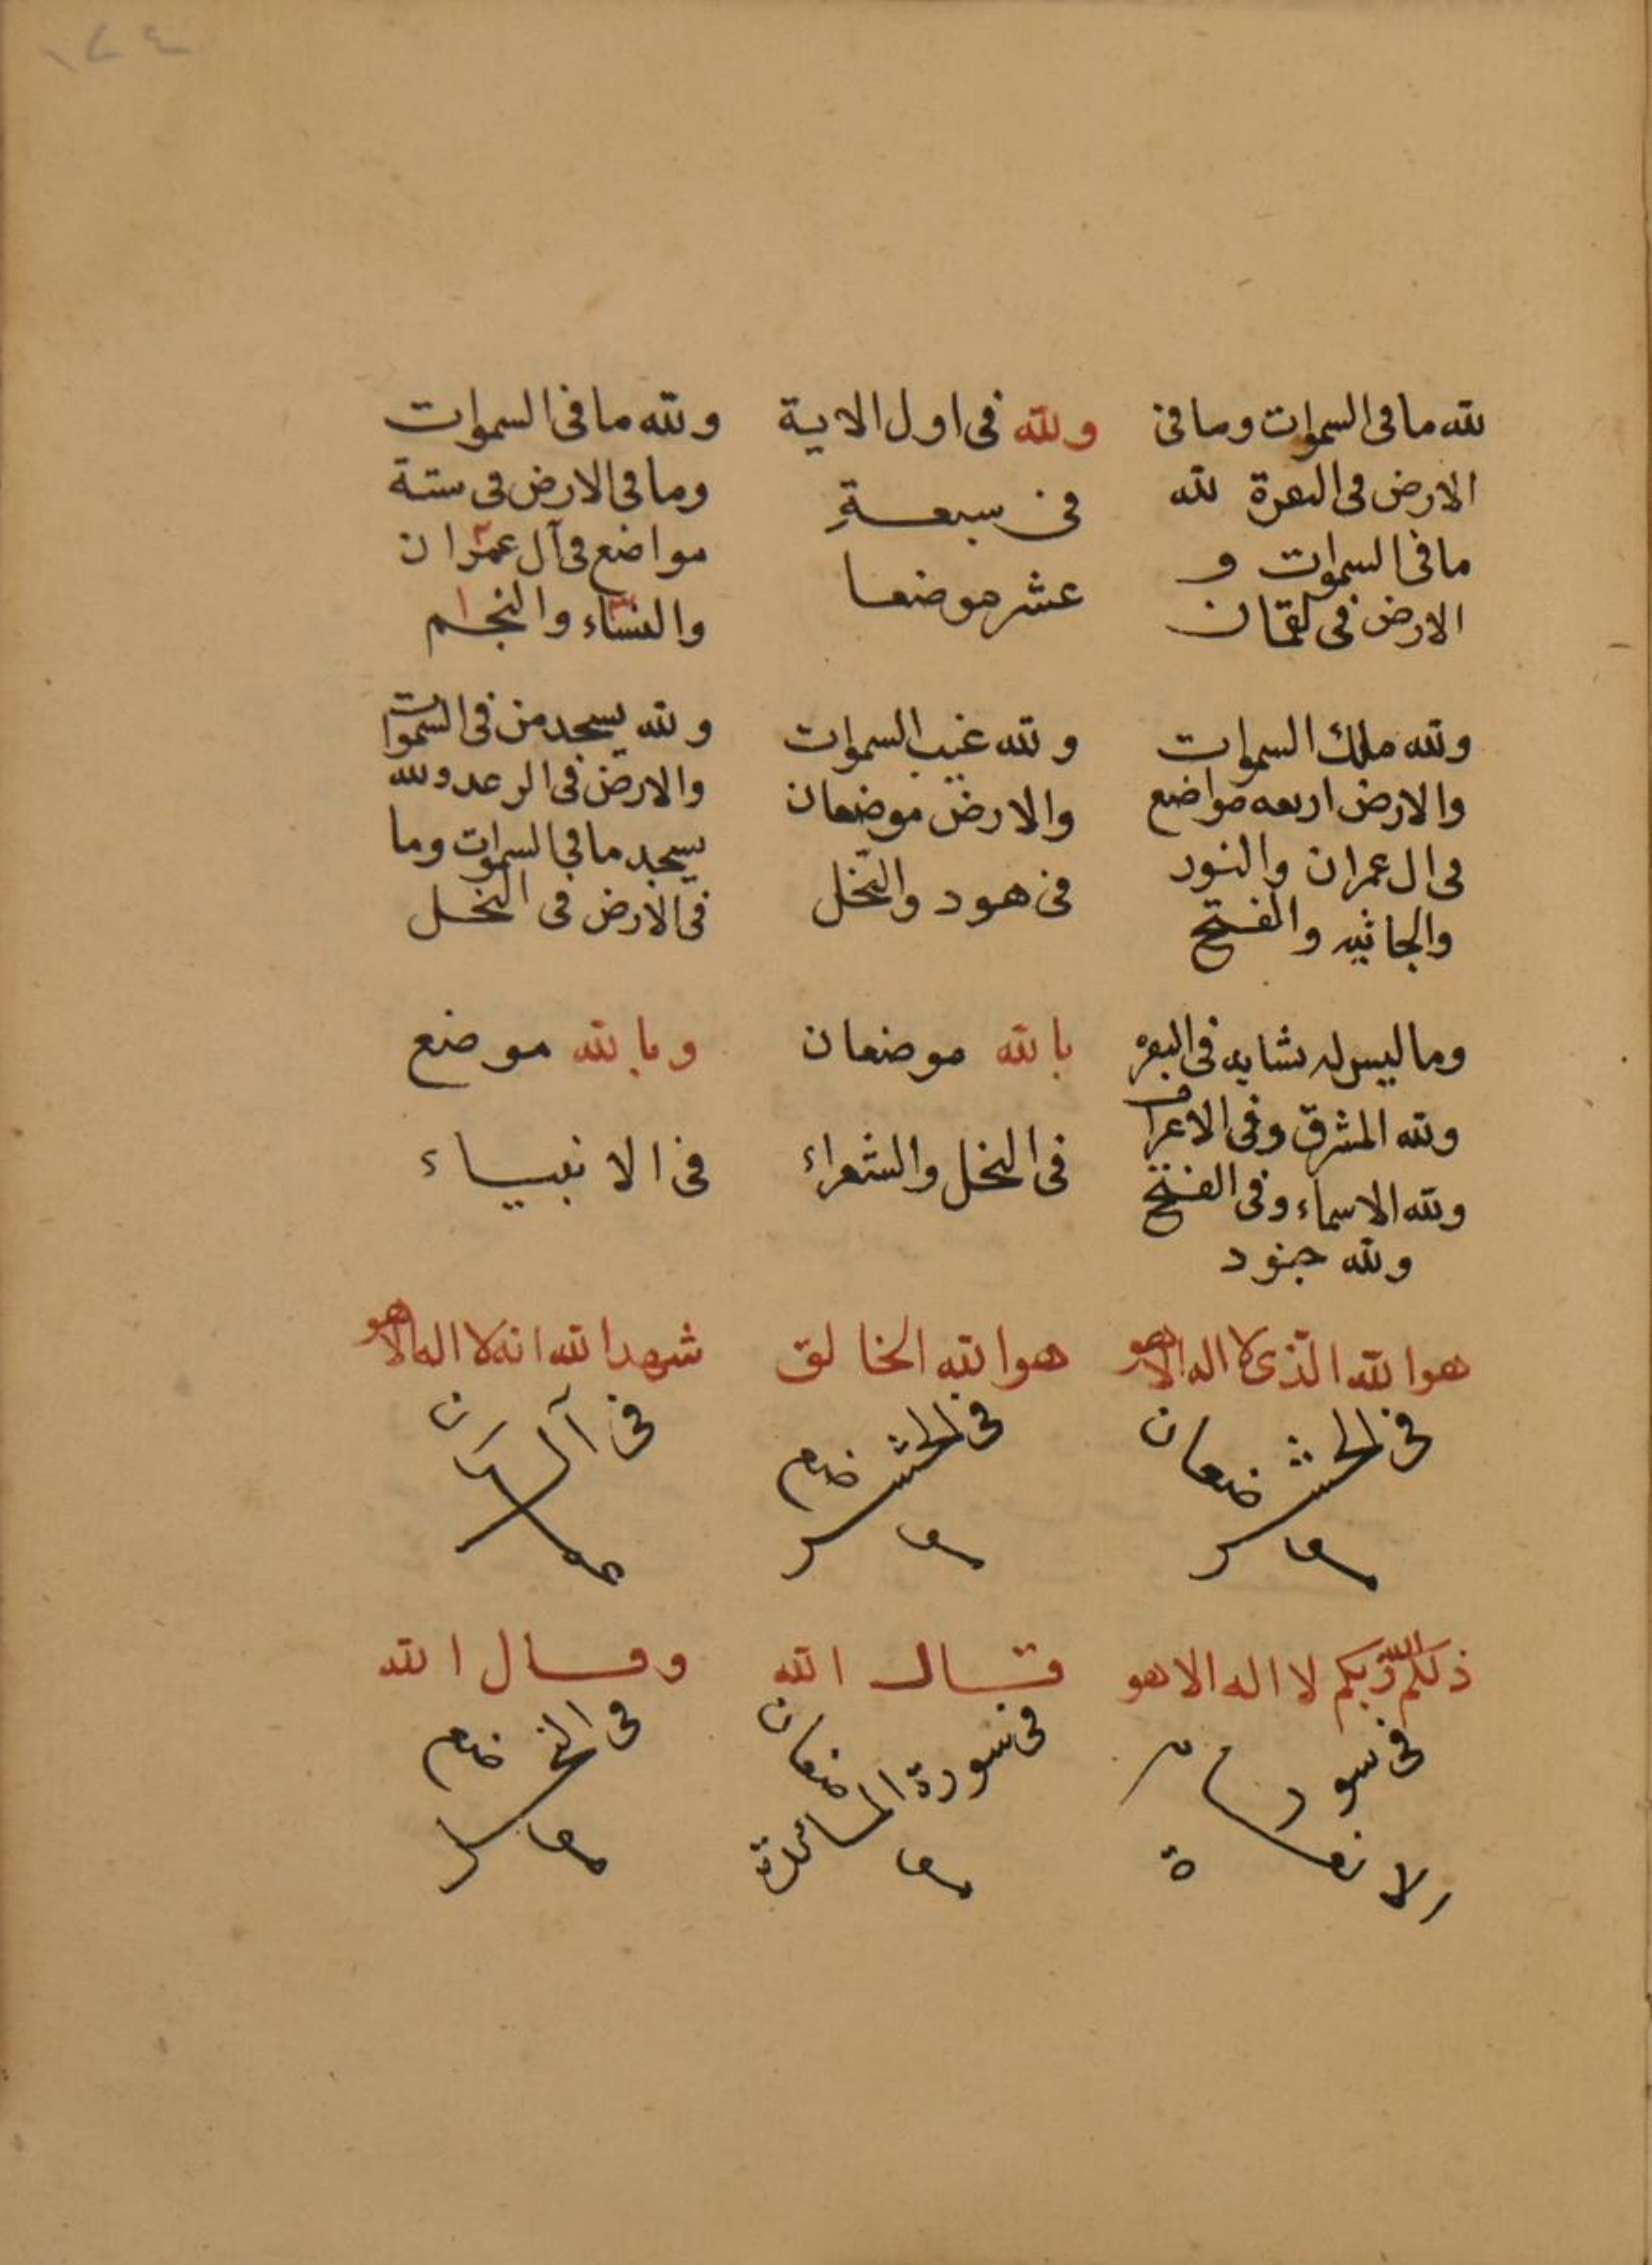 ١٢٤
لله ما فى السموات وما فى
الارض فى البقرة لله
ما فى السموات و
الارض فى لقمان
ولله فى اول الاية
فى سبعة
عشر موضعا
ولله ما فى السموات
وما فى الارض فى ستة
مواضع فى آل عمران
والنساء والنجم
ولله ملك السموات
والارض اربعه مواضع
فى ال عمران والنور
والجاثيه والفتح
ولله غيب السموات
والارض موضعان
فى هود والنحل
ولله يسجد من فى السموات
والارض فى الرعد ولله
يسجد ما فى السموات وما
فى الارض فى النحل
وما ليس له تشابه فى البقره
ولله المشرق وفى الاعراف
ولله الاسماء وفى الفتح
ولله جنود
بالله موضعان
فى النحل والشعراء
وبالله موضع
فى الانبياء
هو الله الذى لا اله الا هو
فى الحشر
موضعان
هو الله الخالق
فى الحشر
موضع
شهد الله انه لا اله الا هو
فى آل
عمران
ذلكم الله ربكم لا اله الا هو
فى سورة
الانعام
قال الله
فى سورة المائدة
موضعان
وقال الله
فى النحل
موضع